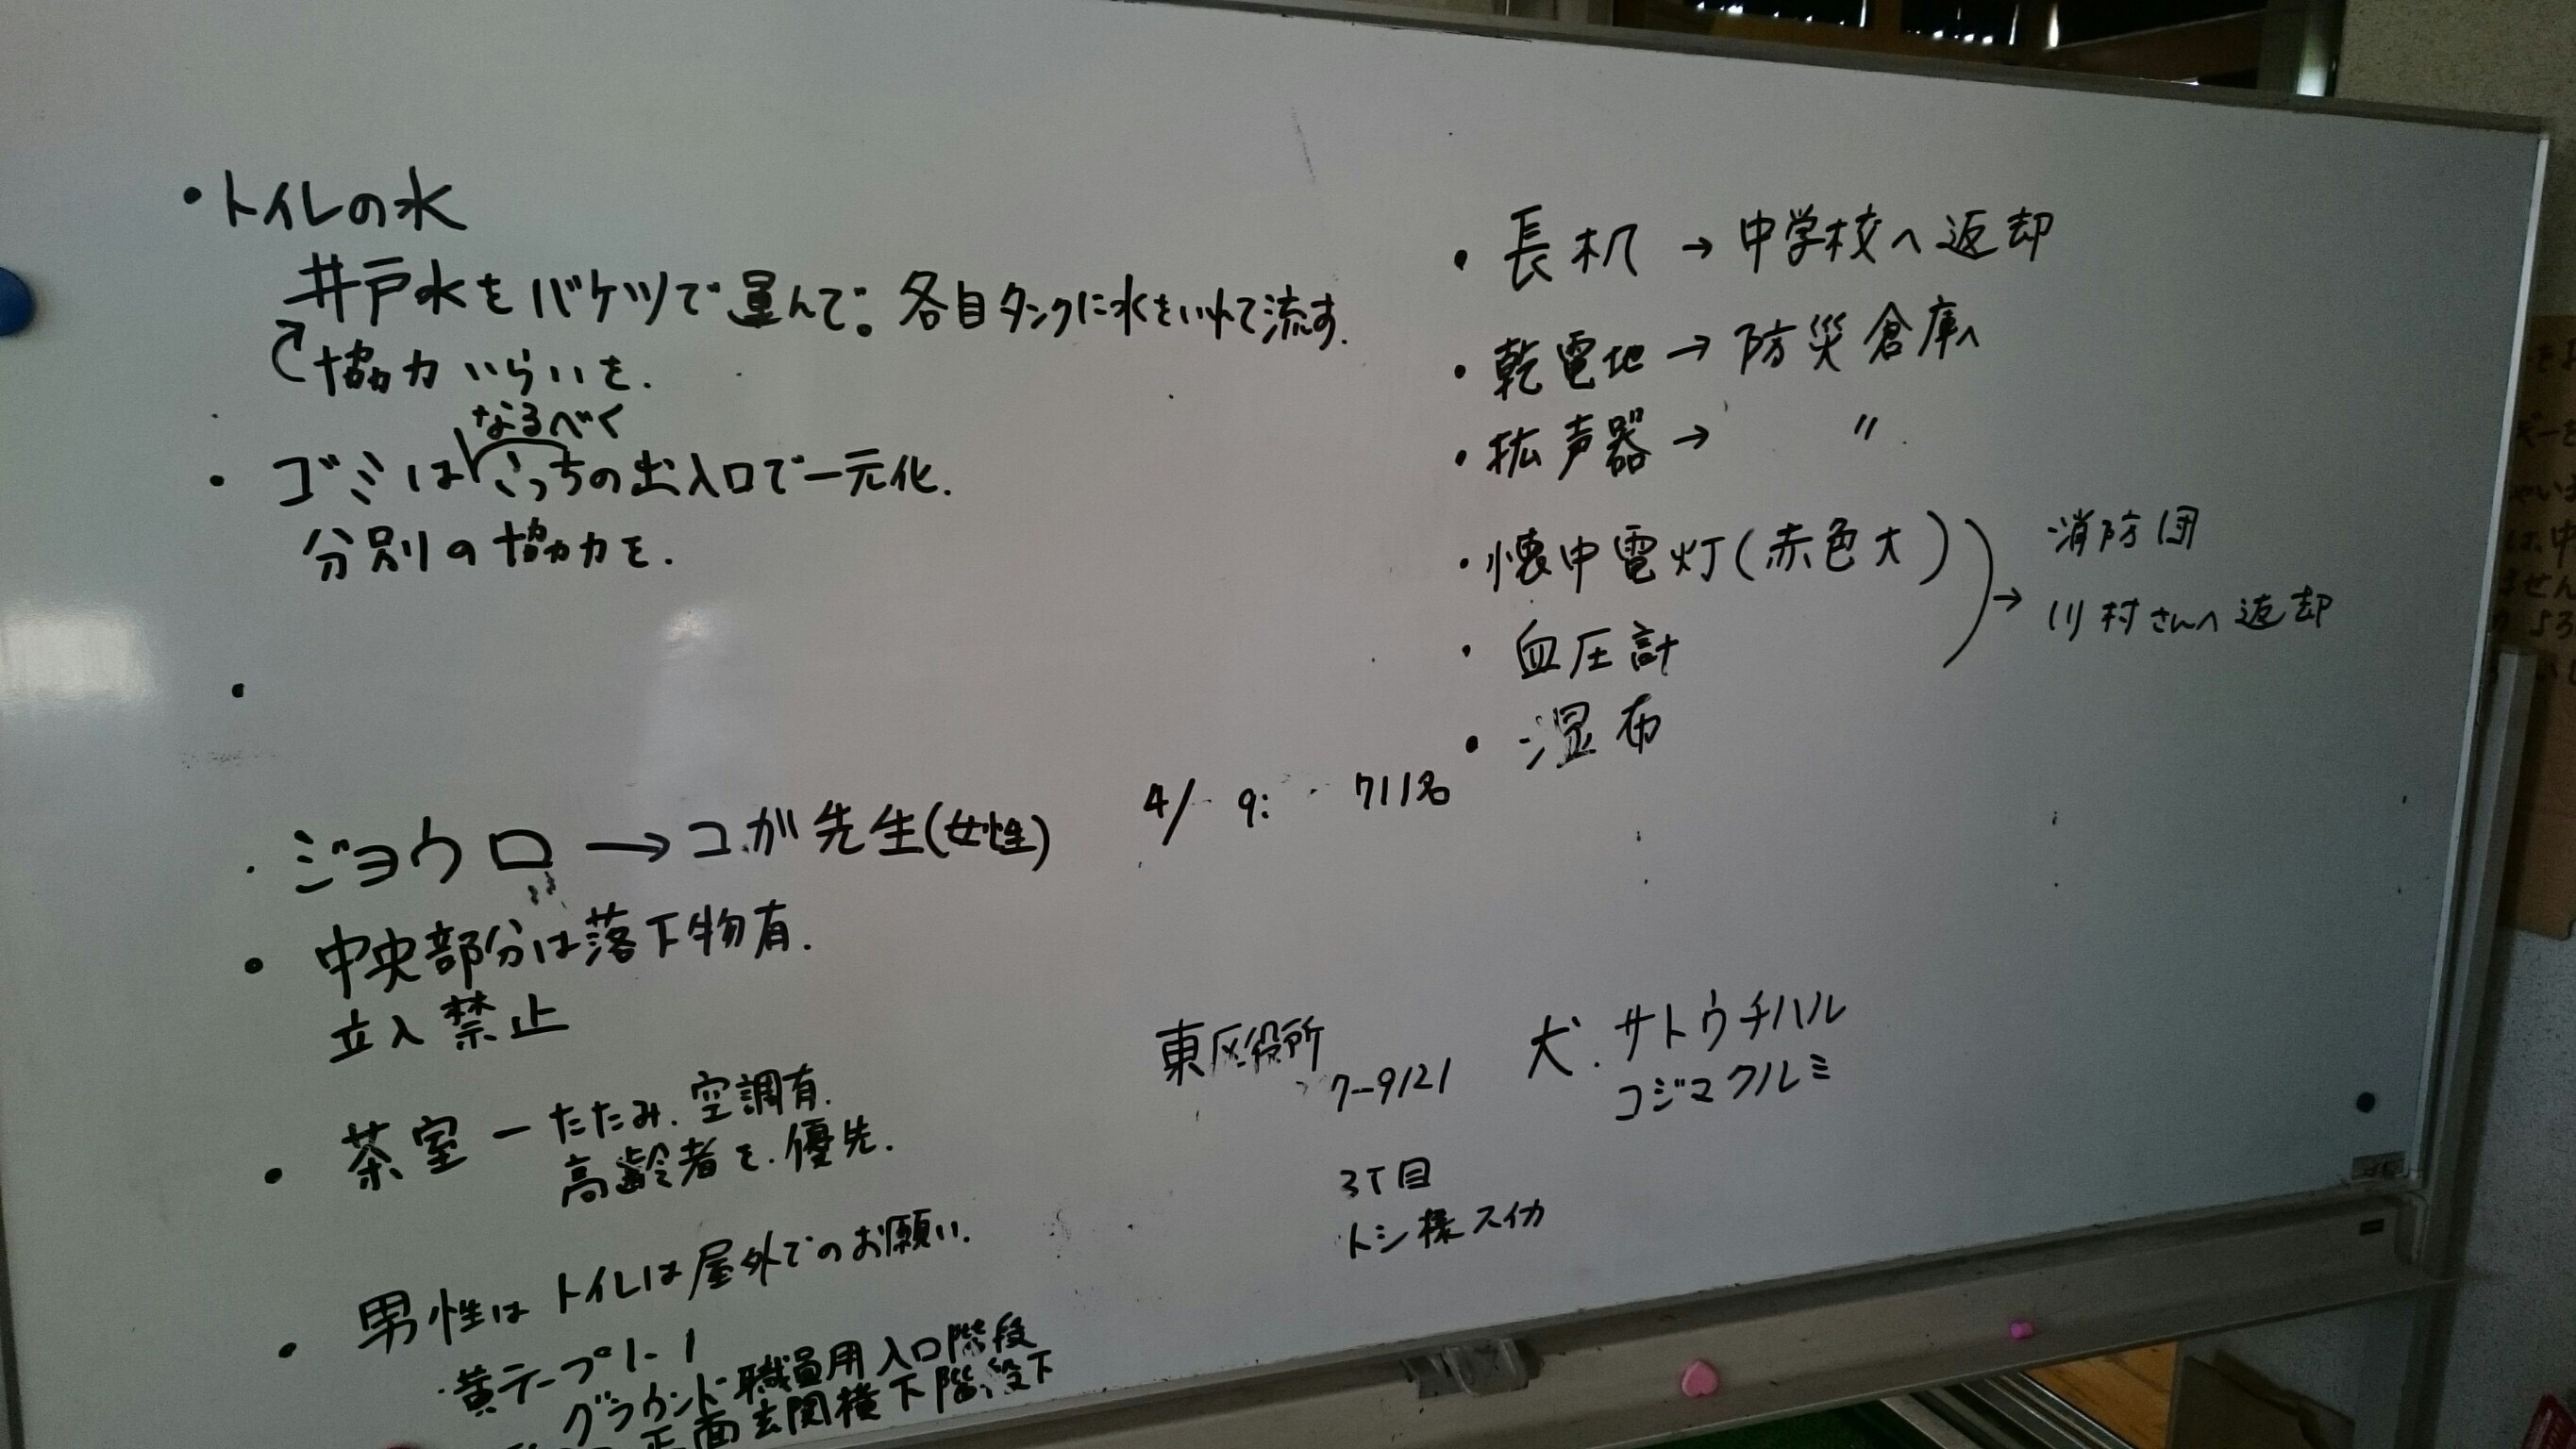 ・トイレの水
井戸水をバケツで運んで。各自タンクに水をいれて流す.
協力いらいを.
なるべく
・ゴミはこっちの出入口で一元化.
分別の協力を.
・
・ジョウロ→コガ先生(女性)
・中央部分は落下物有.
立入禁止
・茶室ーたたみ.空調有.
高齢者を.優先.
・男性はトイレは屋外でのお願い.
・黄テープ1-1
グラウンド職員用入口階段
正面玄関横下階段下
4/ 9: 711名
東区役所
7-9121
犬.サトウチハル
コジマクルミ
3丁目
トシ様スイカ
・長机→中学校へ返却
・乾電地→防災倉庫へ
・拡声器→ 〃
・懐中電灯(赤色大)
・血圧計
→消防団
川村さんへ返却
・湿布